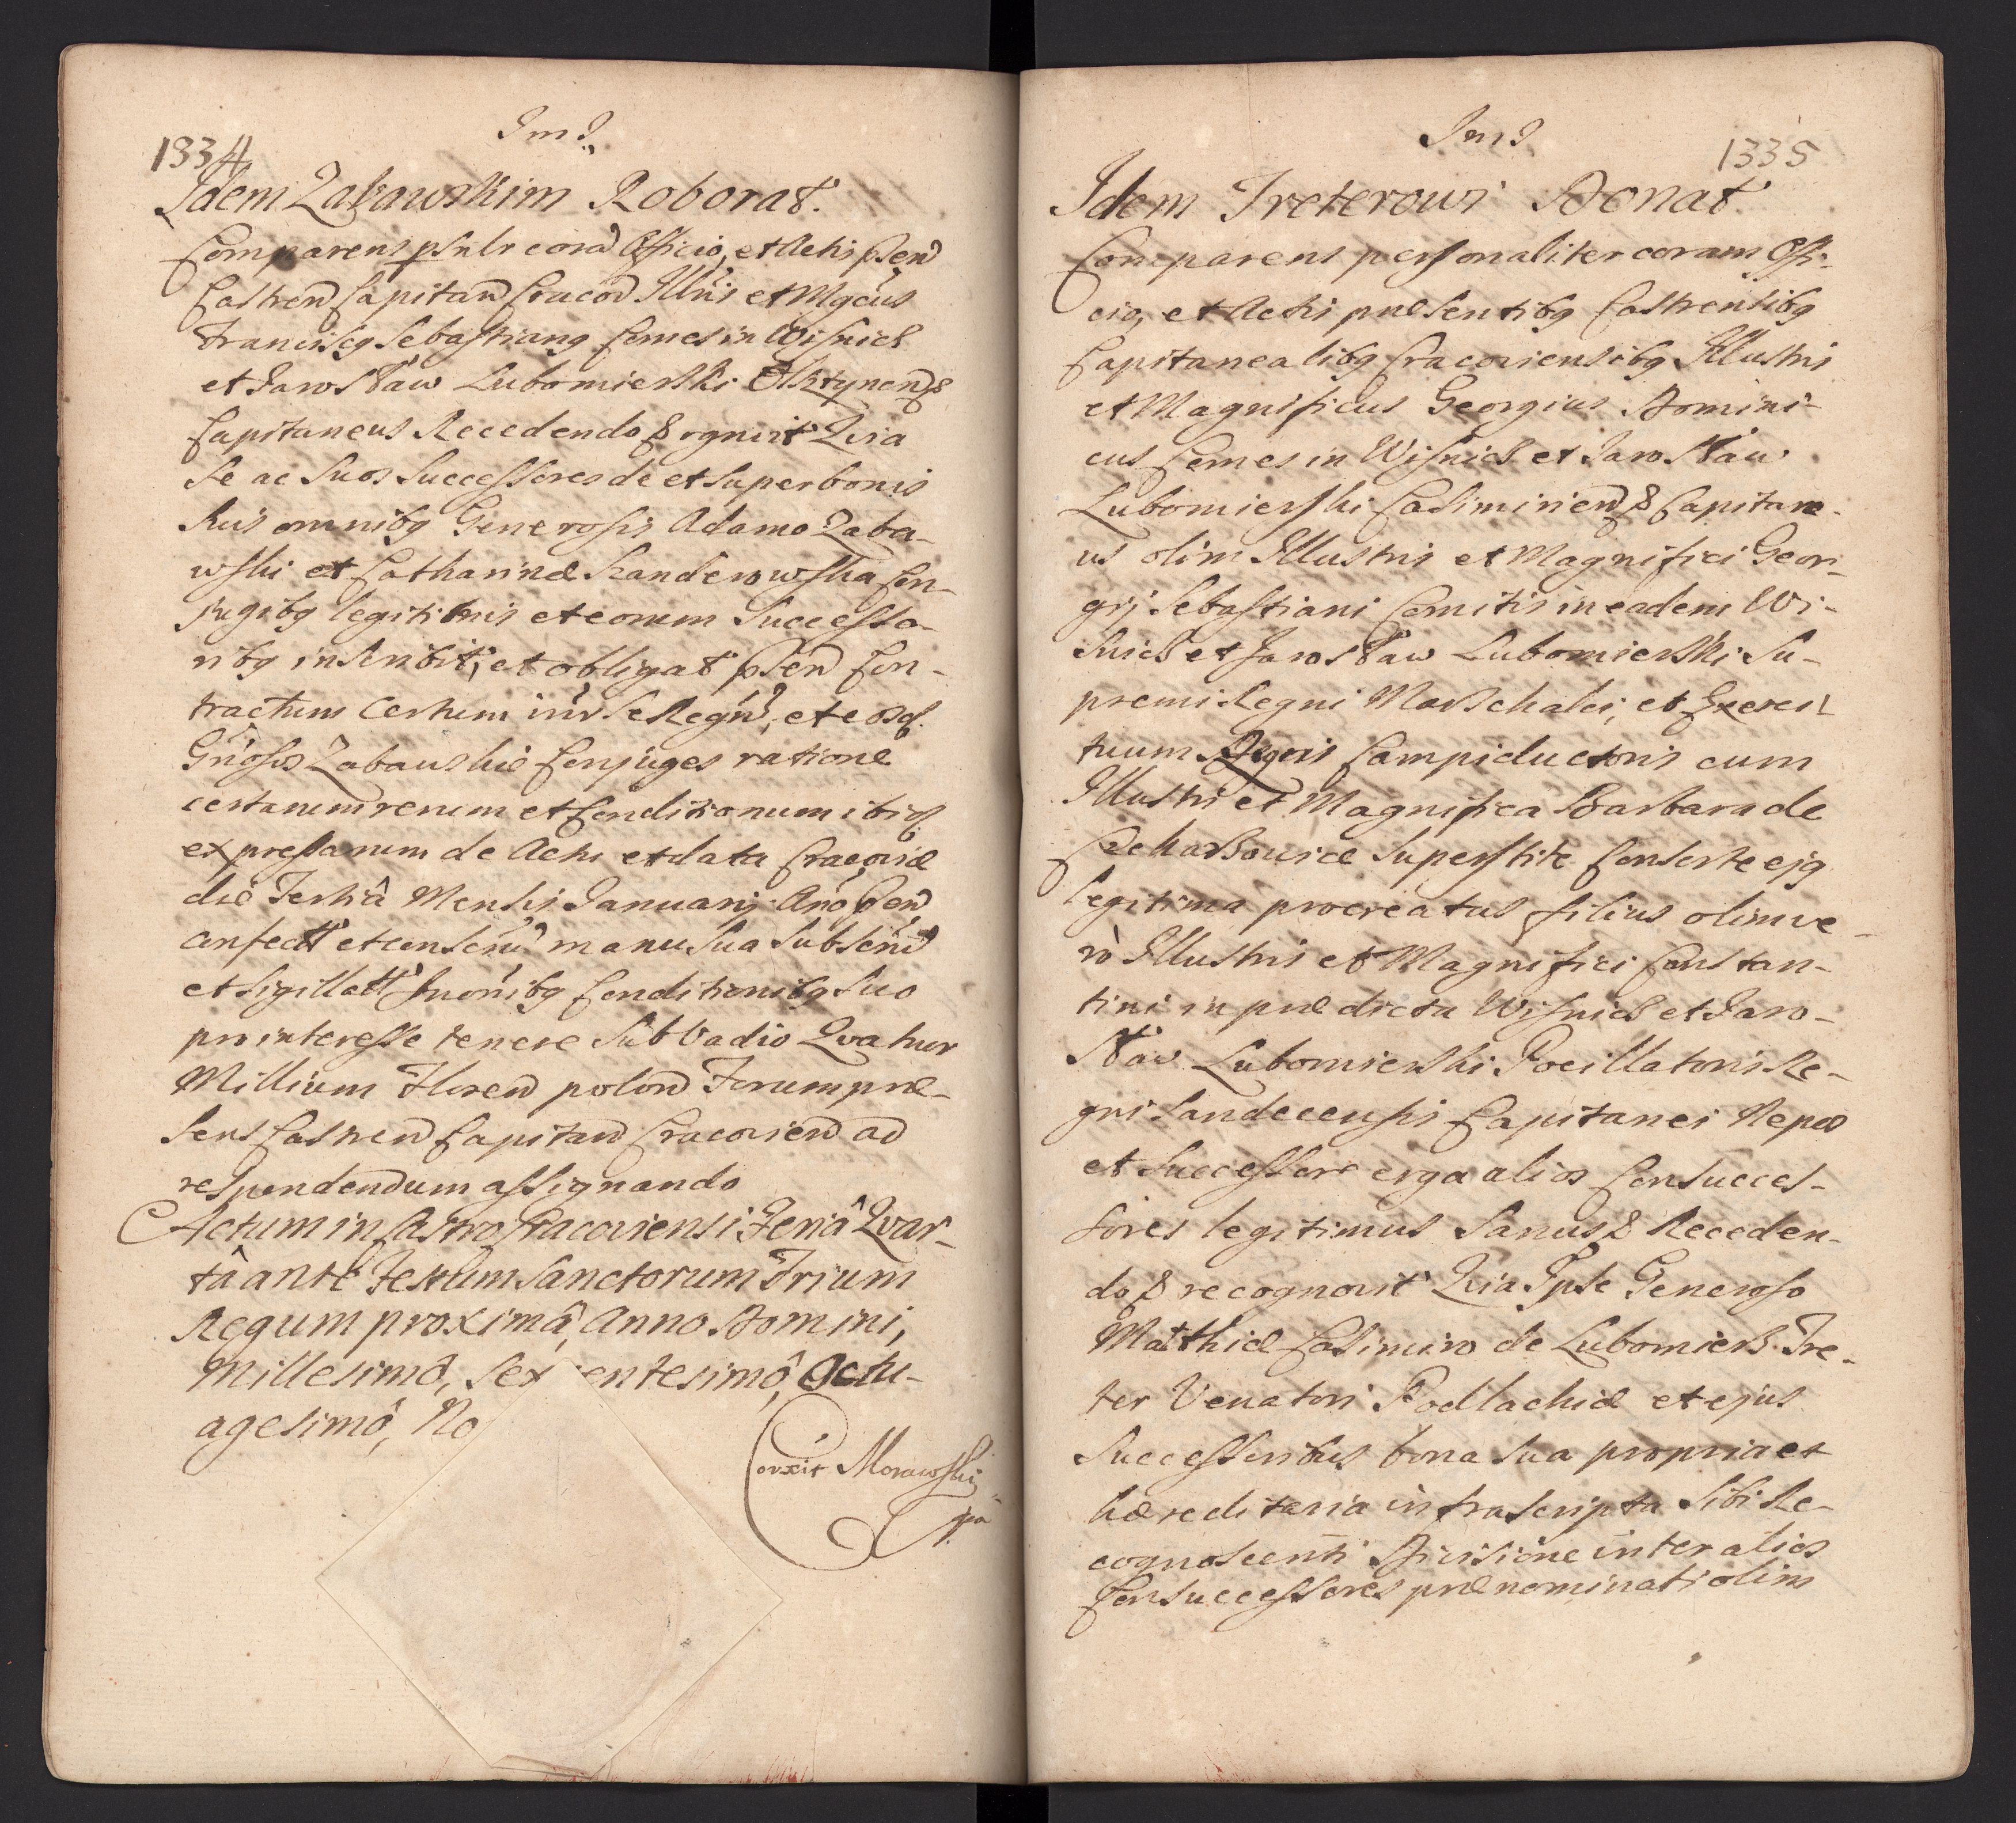 1334
Im J.
Idem Zabawskim Roborat.
Comparens psnlr corã Officio, et Actis psen
Castren Capitan Cracov Illris et Mgcus
Franciscq Sebastianq Comes in Wisnicz
et Jarosław Lubomierski Olsztynen &
Capitaneus Recedendo & ognovit Quia
Se ac Suos Successores de et super bonis
Suis omnibq Generosis Adamo Zaba-
wski et Catharinæ Skanderowska Con-
jugibq legitimis et eorum Successo-
ribq inscribit, et obligat psen Con-
tractum Certum intr Se Regn, et eosd.
Gnosos Zabauskie Conjuges ratione
certarum rerum et Conditionum ibid
expressarum de Actu et data Cracoviæ
die Tertiâ Mensis Januarij Año psen
confectt et conscru manu Sua Subscru
et Sigillatt in oribq Conditionibq Suo
pro interesse tenere Sub Vadio Quatuor
Millium Floren polon Forum præ-
sens Castren Capitan Cracovien ad
respondendum assignando
Actum in Castro Cracoviensi Feriâ Quar-
tâ ante Festum Sanctorum Trium
Regum proximâ, Anno Domini,
Millesimô, Sex entesimô, Octu-
agesimô, No
Corxit Morawski
mpa
Im J.
1335
Idem Treterowi Donat
Comparens personaliter coram Offi-
cio, et Actis præsentibq Castrensibq
Capitanealibq Cracoviensibq Illustris
et Magnificus Georgius Domini-
cus Comes in Wisnicz et Jarosław
Lubomierski Casimirien & Capitane-
us olim Illustris et Magnifici Geor-
gij Sebastiani Comitis in eadem Wi-
snicz et Jarosław Lubomierski Su-
premi Regni Marschalci, et Exerci-
tuum Campiductoris cum
Illustri et Magnifica Barbara de
superstite Consorte ejq
legitima procreatus filius olim ve-
rò Illustris et Magnifici Constan-
tini in prædicta Wisnicz et Jaro-
sław Lubomierski Pocillatoris Re-
gni Sandecensis Capitanei Nepos
et Successor erga alios Consucces-
sores legitimus Sanus & Receden-
do & recognovit Quia Ipse Generoso
Matthiæ Casimiro de Lubomierz Tre-
ter Venatori Podlachiæ et ejus
Successoribus bona Sua propria et
hæreditaria infrascripta Sibi Re-
cognoscenti Divisione inter alios
Consuccessores prænominati olim